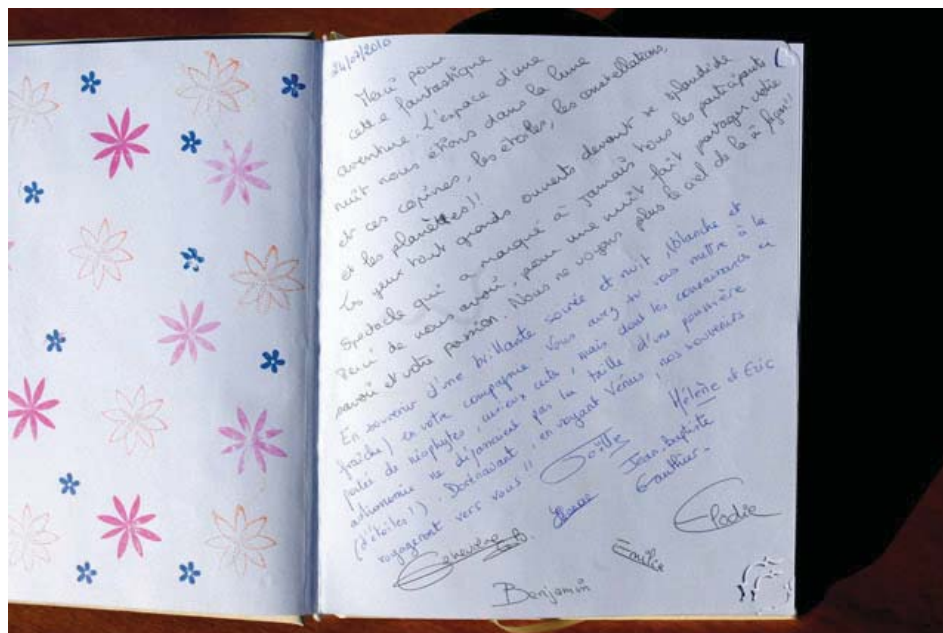 24/07/2010
Merci pour
cette fantastique
aventure. L'espace d'une
nuit nous étions dans la lune
et ces copines, les étoiles, les constellations,
et les planètes!!
Les yeux tout grands ouverts devant ce splendide
Spectacle qui a marqué à jamais tous les participants
Merci de nous avoir, pour une nuit fait partager votre
savoir et votre passion. Nous ne voyons plus le ciel de la m̂ façon!!
En souvenir d'une brillante soirée et nuit, (blanche et
fraîche) en votre compagnie. Vous avez su vous mettre à la
portée de néophytes, curieux certes, mais dont les connaissances en
astronomie ne dépassaient pas la taille d'une poussière
(d'étoiles!). Dorénavant, en voyant Vénus nos souvenirs
voyageront vers vous!!
Joëlle
Hélène et Eric
Jean-Baptiste
Gauthier.
Elodie
Geneviève
Emilie
Benjamin